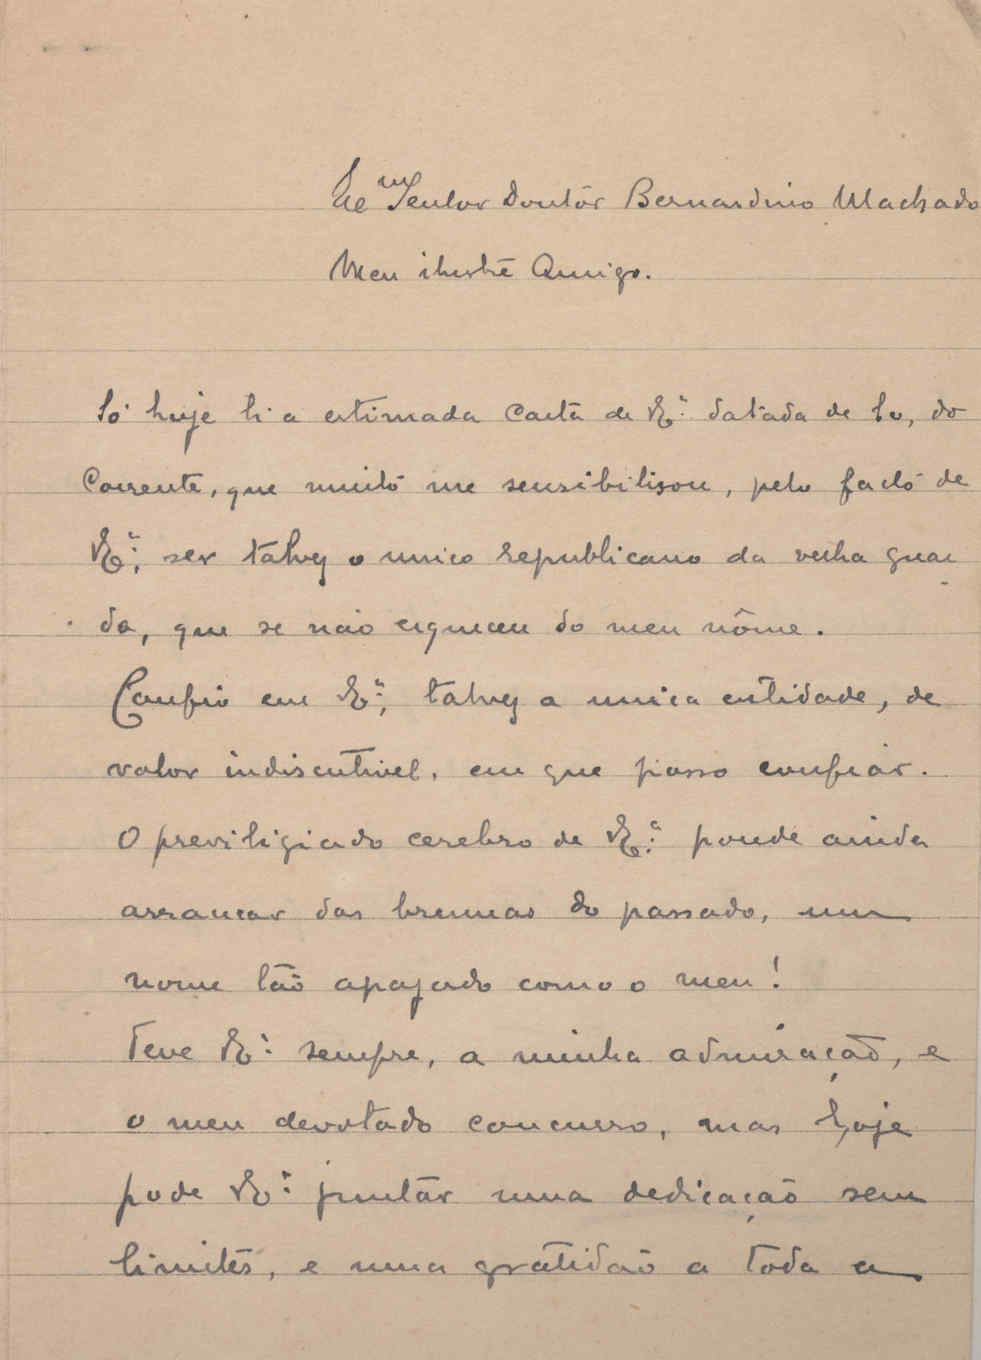 Exᵐᵒ Senhor Doutôr Bernardino Machado
Meu ilustre Amigo.
Só hoje li a estimada carta de V. Exª. datada de 10, do
Corrente, que muito me sensibilisou, pelo facto de
V. Exª; ser talvez o unico republicano da velha guar
da, que se não esqueceu do meu nôme.
Confio em V. Exª; talvez a unica entidade, de
valor indiscutivel, em que posso confiar.
O previligiado cerebro de V. Exª: poude ainda
arrancar das brumas do passado, um
nome tão apagado como o meu!
Teve V. Exª: sempre, a minha admiração, e
o meu devotado concurso, mas hoje
pode V. Exª: juntar uma dedicação sem
limites, e uma gratidão a toda a